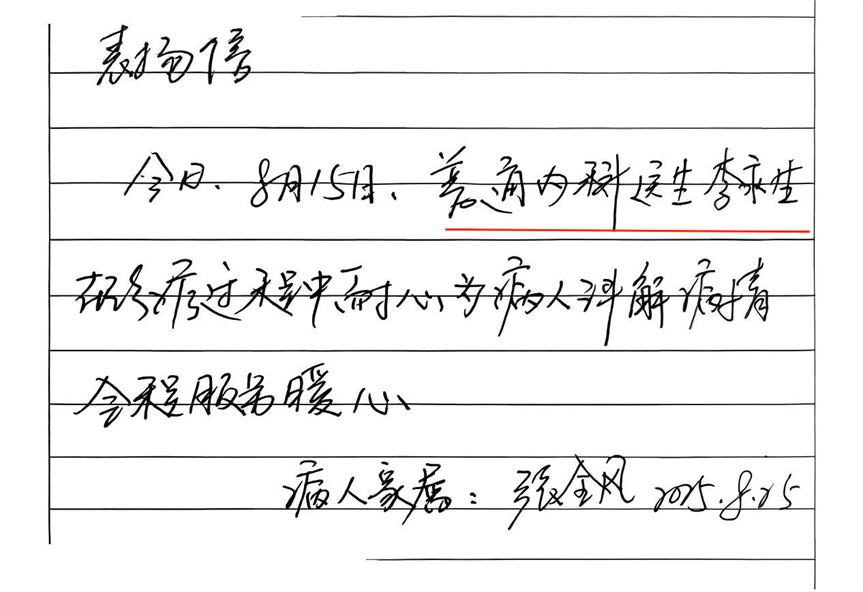 表扬信
今日、8月15日、普通内科医生李永生
在诊疗过程中耐心为病人讲解病情
全程服务暖心
病人家属：张金凤 2025.8.25